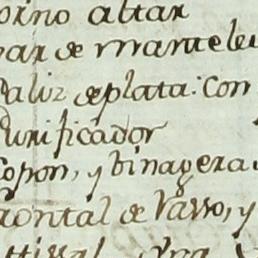 orno altar
par de mantele
Caliz de plata: Con
Purificador
Copon, y binagera
rontal de Vasso, y